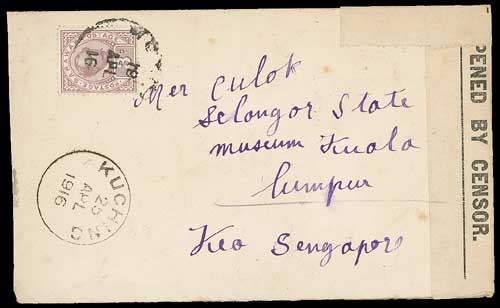 18
APL
16
Mer Culok
Selongor State
museum Kuala
lumpur
Keo Sengapore
KUCHING
25
APL
1916
PENED BY CENSOR.